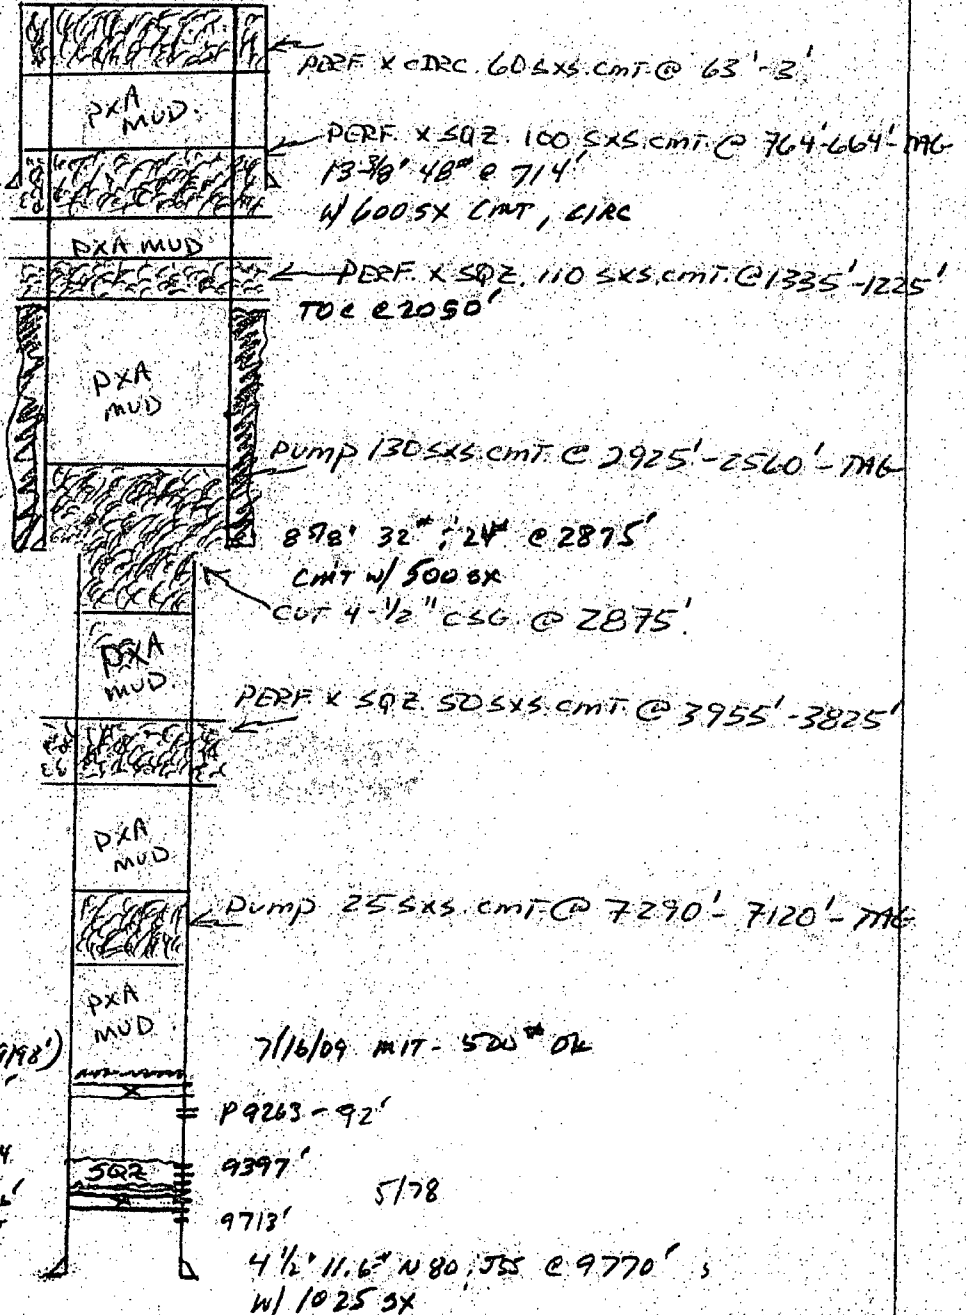 PERF. X CIRC. 60 SXS. CMT. @ 63'-3'
PXA
MUD.
PERF. X SQZ. 100 SXS. CMT. @ 764'-664'-TAG
13-3/8" 48# @ 714'
W/ 600 SX CMT, CIRC
PXA MUD
PERF. X SQZ. 110 SXS. CMT. @ 1335'-1225'
TOC @ 2050'
PXA
MUD
PUMP 130 SXS. CMT. @ 2925'-2560'-TAG
8 5/8" 32#; 24# @ 2875'
CMT W/ 500 SX
CUT 4-1/2" CSG. @ 2875'.
PXA
MUD.
PERF. X SQZ. 50 SXS. CMT. @ 3955'-3825'
PXA
MUD
PUMP 25 SXS. CMT. @ 7290'-7120'-TAG
PXA
MUD.
9198')
7/16/09 MIT- 500# OK
P 9263-92'
SQZ
9397'
5/78
9713'
4 1/2" 11.6# N80; J55 @ 9770'
W/ 1025 SX